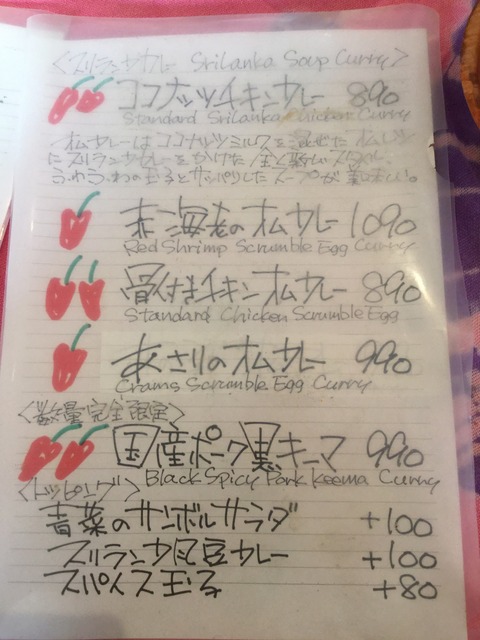 <スリランカカレー SriLanka Soup Curry>
ココナッツチキンカレー 890
Standard SriLanka Chicken Curry
オムカレーはココナッツミルクを混ぜたオムレツ
にスリランカカレーをかけた全く新しいスタイル。
ふわふわの玉子とサッパリしたスープが美味しい。
赤海老のオムカレー 1090
Red Shrimp Scrumble Egg Curry
骨付きチキンオムカレー 890
Standard Chicken Scrumble Egg
あさりのオムカレー 990
Crams Scrumble Egg Curry
<数量完全限定>
国産ポーク黒キーマ 990
Black Spicy Pork Keema Curry
<トッピング>
青菜のサンボルサラダ +100
スリランカ風豆カレー +100
スパイス玉子 +80